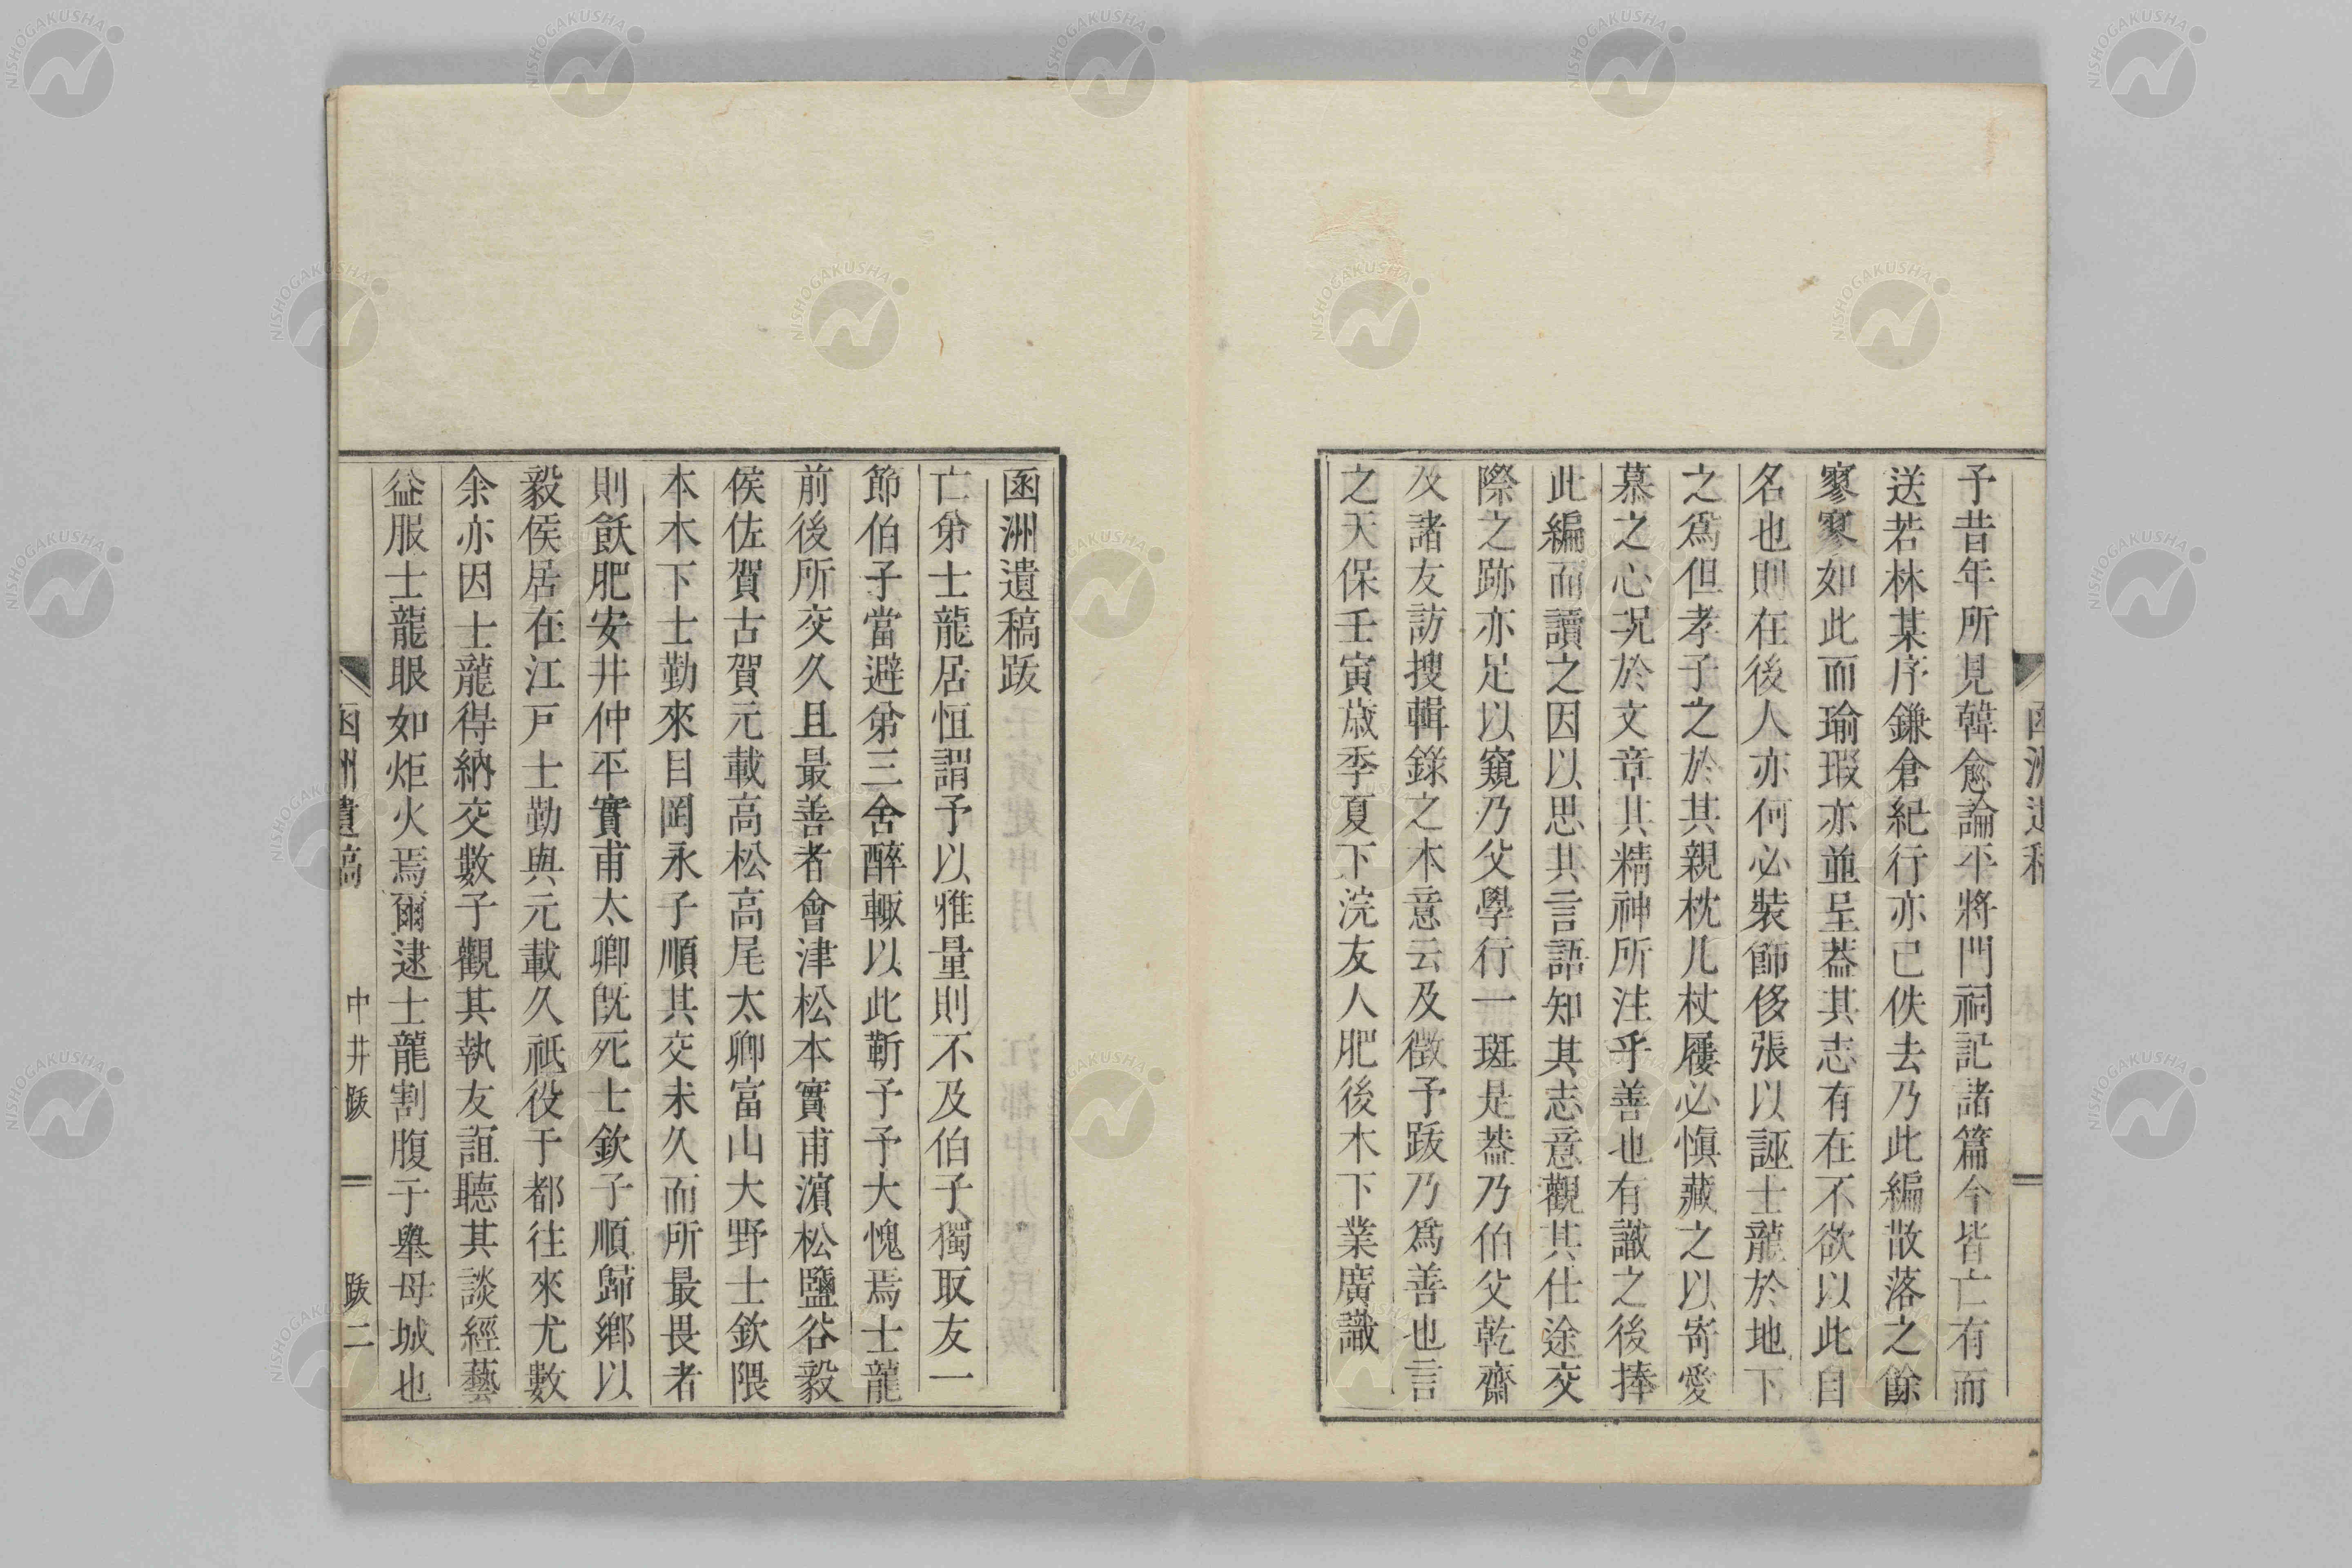 予昔年所見韓愈論平將門祠記諸篇今皆亡有而
送若林某序鎌倉紀行亦已佚去乃此編散落之餘
寥寥如此而瑜瑕亦並呈葢其志有在不欲以此自
名也則在後人亦何必裝飾侈張以誣士龍於地下
之爲但孝子之於其親枕几杖屨必愼藏之以寄愛
慕之心況於文章其精神所注乎善也有識之後捧
此編而讀之因以思其言語知其志意觀其仕途交
際之跡亦足以窺乃父學行一斑是葢乃伯父乾齋
及諸友訪搜輯錄之本意云及徵予跋乃爲善也言
之天保壬寅歲季夏下浣友人肥後木下業廣識
函洲遺稿跋
亡弟士龍居恒謂予以雅量則不及伯子獨取友一
節伯子當避弟三舍醉輙以此靳予予大愧焉士龍
前後所交久且最善者會津松本實甫濵松鹽谷毅
侯佐賀古賀元載高松高尾太卿富山大野士欽隈
本木下士勤來目岡永子順其交未久而所最畏者
則飫肥安井仲平實甫太卿旣死士欽子順歸鄉以
毅侯居在江戸士勤與元載久祗役于都往來尤數
余亦因士龍得納交數子觀其執友誼聽其談經藝
益服士龍眼如炬火焉爾逮士龍割腹于擧母城也
函洲遺稿
中井跋
跋二
NISHOGAKUSHA